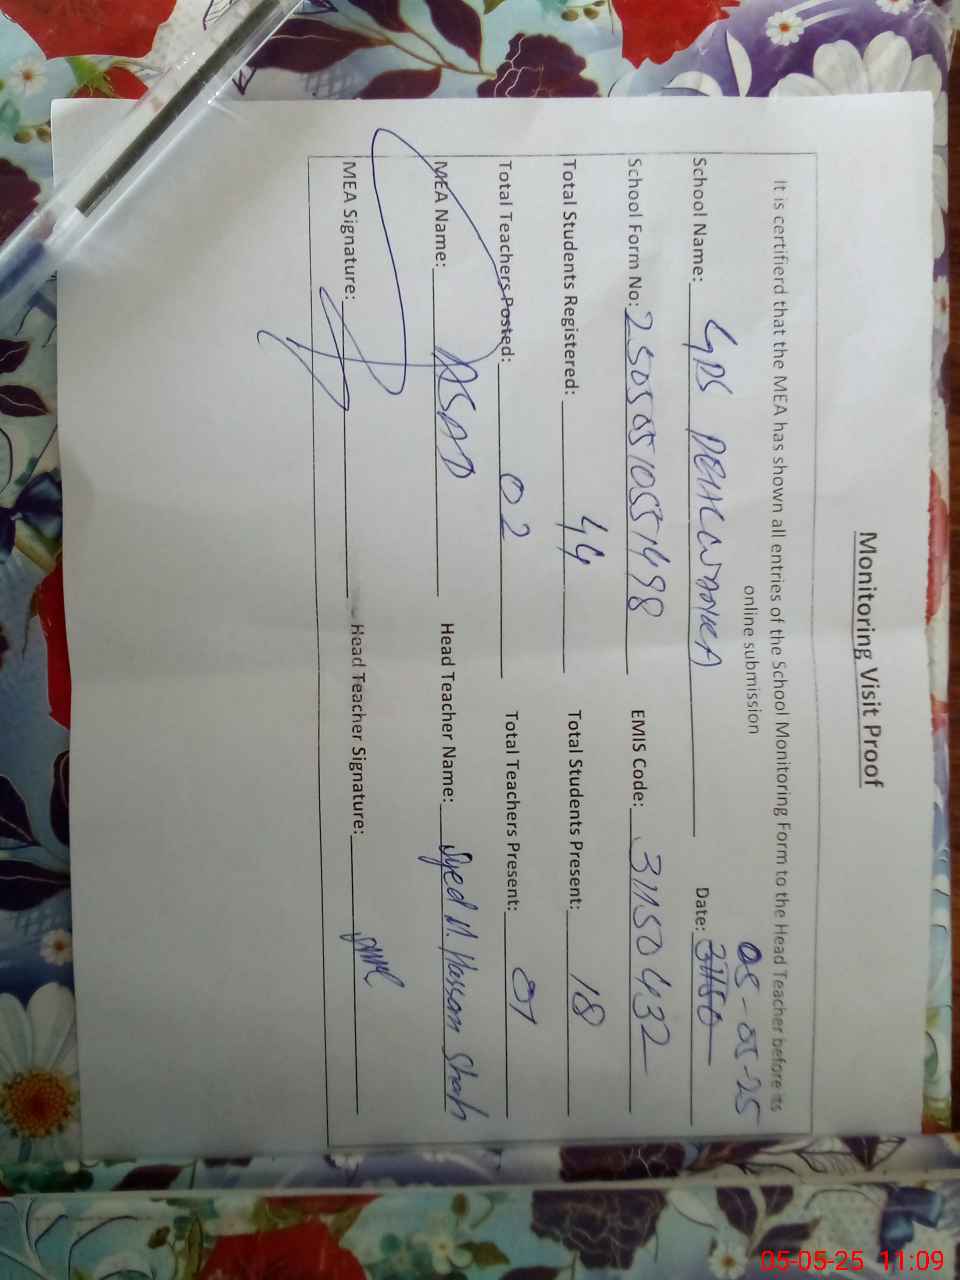 Monitoring Visit Proof
It is certifierd that the MEA has shown all entries of the School Monitoring Form to the Head Teacher before its
online submission
05-05-25
School Name: GPS Date: 31150
School Form No: 25050510551498 EMIS Code: 31150432
Total Students Registered: 44 Total Students Present: 18
Total Teachers Posted: 02 Total Teachers Present: 01
MEA Name: ASAD Head Teacher Name: Syed M. Hassan Shah
MEA Signature: Head Teacher Signature:
05-05-25 11:09